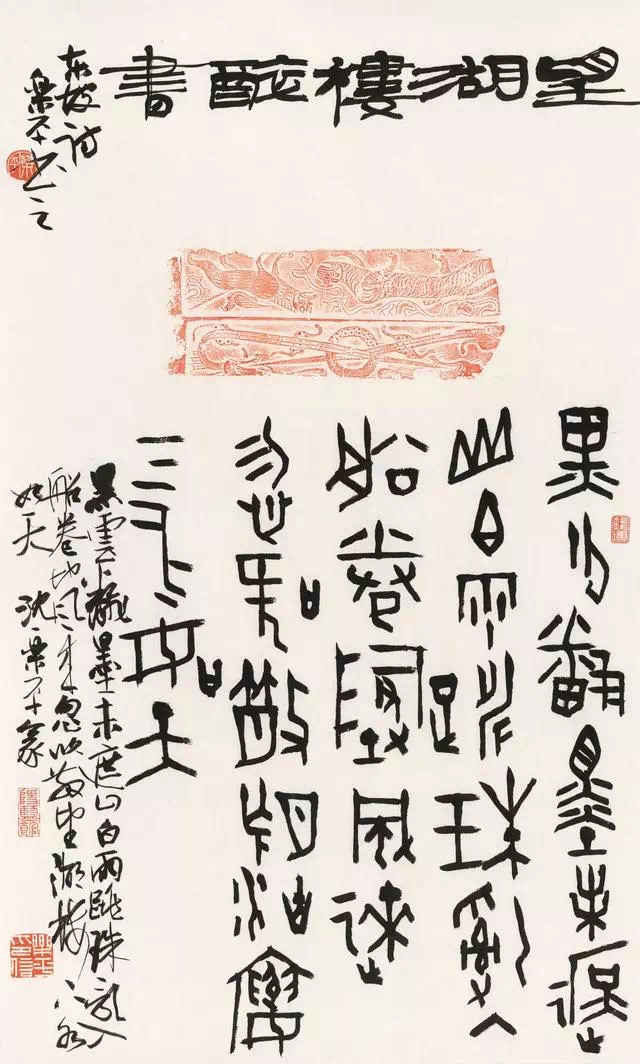 望湖樓醉書
東坡詩
樂平書之
黑云翻墨未遮
山白雨跳珠亂入
船卷地風來
忽吹散望湖樓
下水如天
黑雲翻墨未遮山白雨跳珠亂入
船卷地風來忽吹散望湖樓下水
如天 沈樂平篆